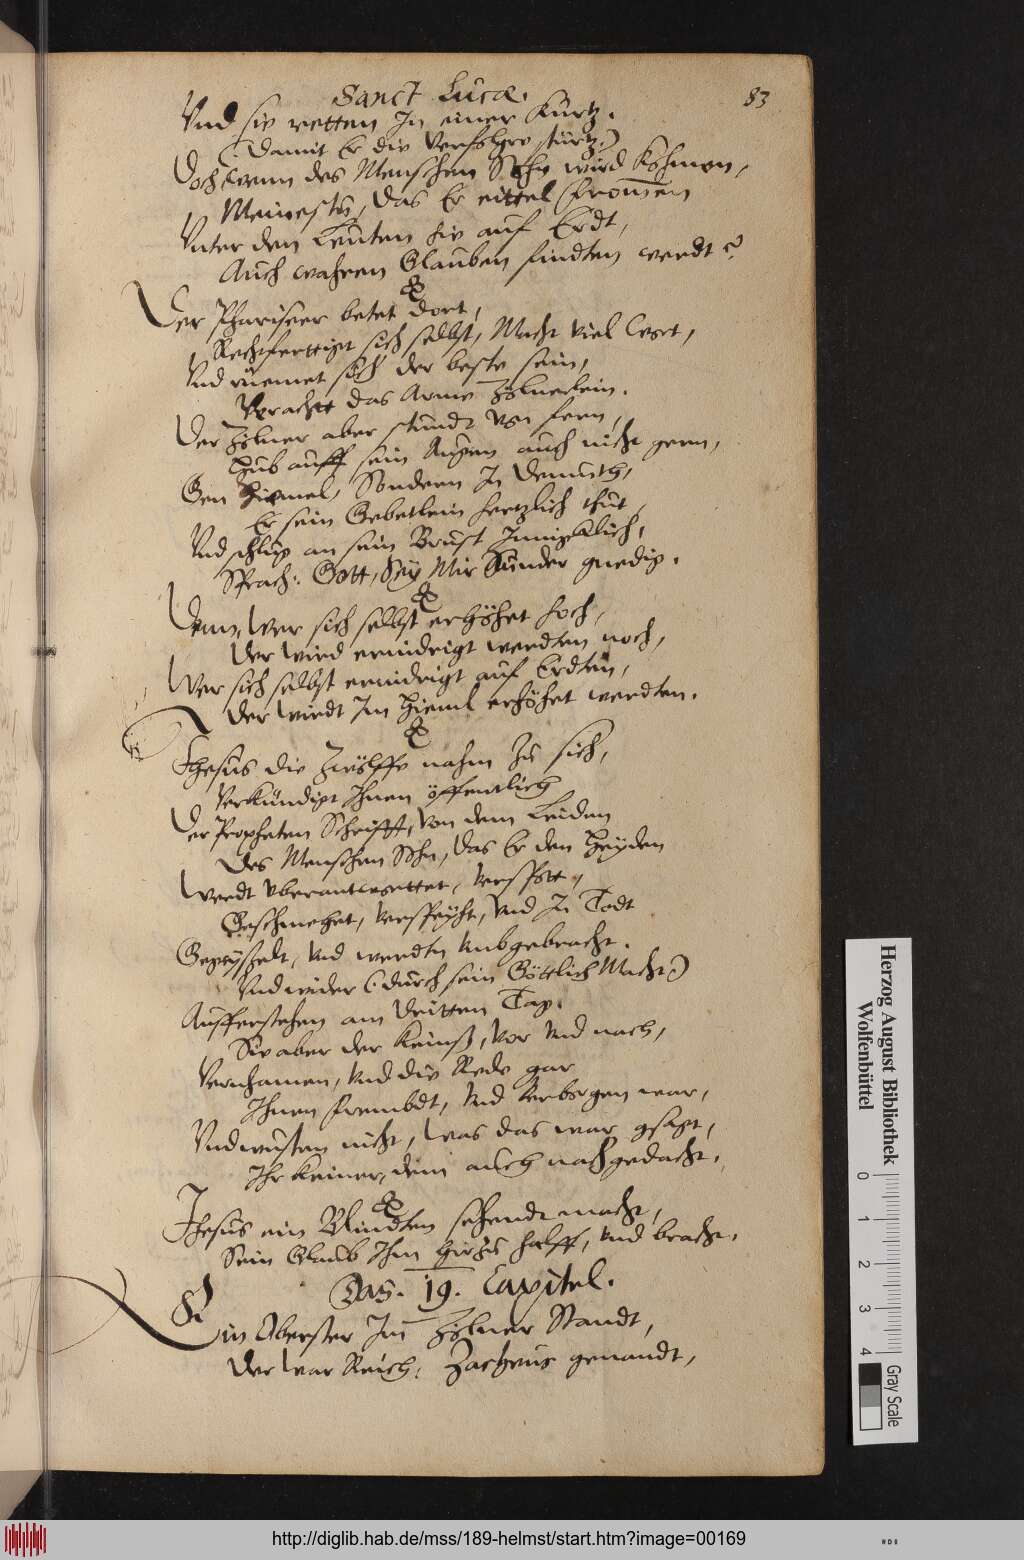 Sanct Lucæ.
83
Vnd sie retten In einer Kurtz.
Damit Er die Verfolger stürtz.)
Doch wenn des Menschen Sohn wird Kohmen,
Meinestu, das Er eittel Fromen
Vnter den Leuten hie auf Erdt,
Auch wahren Glauben findten werdt?
Der Phariseer betet dort,
Rechtfertiget sich selbst, Macht viel Wort,
Vnd rüemet sich der beste sein,
Veracht das Arme Zölnerlein.
Der Zölner aber stundt von fern,
Hub auff sein Augen auch nicht gern,
Gen Himel, Sondern In Demuth,
Er sein Gebetlein hertzlich thut,
Vnd schlug an sein Brust Inniglich,
Sprach: Gott, Sey Mir Sünder gnedig.
Denn, Wer sich selbst erhöhet hoch,
Der wird ernidrigt werdten noch,
Wer sich selbst ernidrigt auf Erdten,
Der wirdt Im Himl erhöhet werdten.
Jhesus die Zwölffe nahm Zu sich,
Verkündigt Ihnen öffentlich
Der Propheten Schrifft, Von dem Leiden
Des Menschen Sohn, das Er den Heyden
Werdt vberantworttet, verspott,
Geschmehet, verspeyht, Vnd In Todt
Gegeyßelt, Vnd werdtn vmbgebracht.
Vnd wider (durch sein Göttlich Macht)
Aufferstehen am dritten Tag.
Sie aber der Keinß, Vor Vnd nach,
Vernhamen, Vnd die Rede gar
Ihnen frembdt, Vnd verborgen war,
Vnd wusten nicht, was das war gsagt,
Ihr Keiner, dem auch nachgedacht.
Jhesus ein Blindten sehendt macht,
Sein Glaub Ihm hirzu halff, Vnd bracht.
Das. 19. Capitel.
Ein Oberster Im Zölner Standt,
Der war Reich, Zacheus genandt,
Herzog August Bibliothek
Wolfenbüttel
0 1 2 3 4
Gray Scale
http://diglib.hab.de/mss/189-helmst/start.htm?image=00169